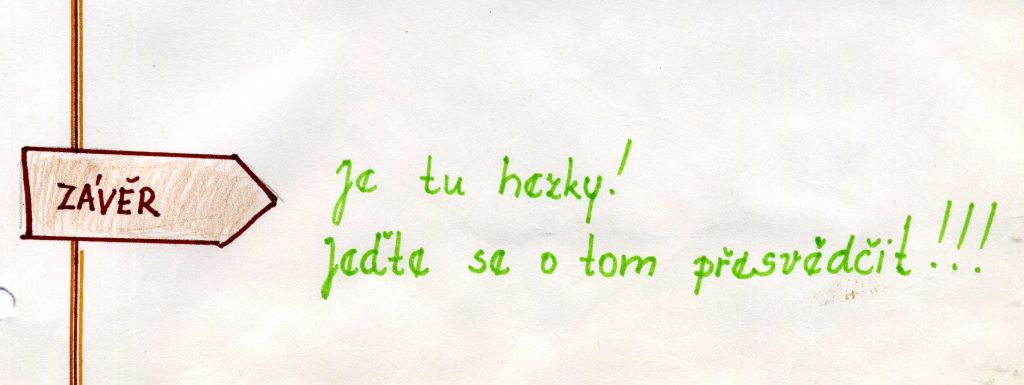 ZÁVĚR
Je tu hezky!
Jeďte se o tom přesvědčit!!!